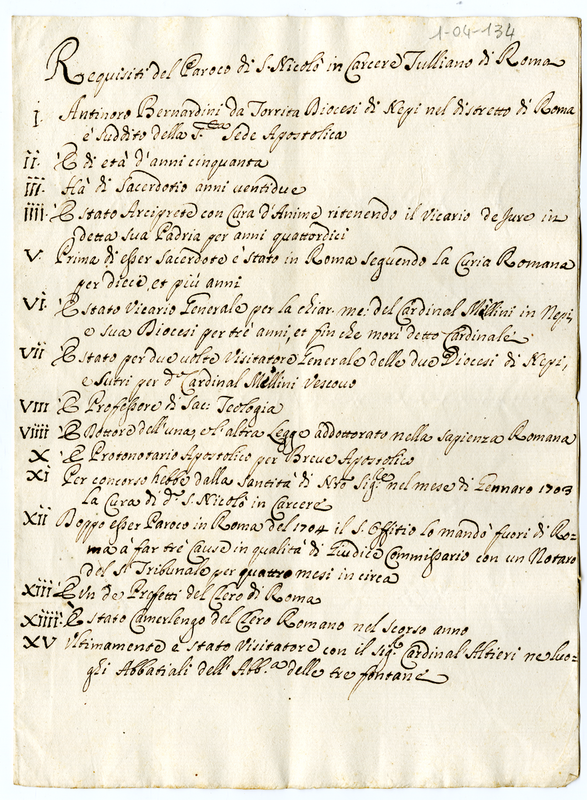 1-04-134
Requisiti del Paroco di S. Nicolò in Carcere Tulliano di Roma
I. Antinoro Bernardini da Torrita Diocesi di Nepi nel distretto di Roma
è suddito della S.ta Sede Apostolica
II. È di età d'anni cinquanta
III. Hà di Sacerdotio anni ventidue
IIII. È stato Arciprete con Cura d'Anime ritenendo il Vicario de Jure in
detta sua Padria per anni quattordici
V. Prima di esser sacerdote è stato in Roma seguendo la Curia Romana
per diece, et più anni
VI. È stato Vicario Generale per la chiar. me. del Cardinal Mellini in Nepi,
e sua Diocesi per trè anni, et fin che morì detto Cardinale
VII È stato per due volte Visitatore Generale delle due Diocesi di Nepi,
e Sutri per d.o Cardinal Mellini Vescovo
VIII È Professore di Sac: Teologia
VIIII È Dottore dell'una, e l'altra Legge addottorato nella Sapienza Romana
X È Protonotario Apostolico per Breve Apostolico
XI Per concorso hebbe dalla Santità di N'ro Sig.re nel mese di Gennaro 1703
la Cura di d.o S. Nicolò in Carcere
XII Doppo esser Paroco in Roma del 1704 il S. Offitio lo mandò fuori di Ro-
ma à far trè Cause in qualità di Giudice Commissario con un Notaro
del S. Tribunale per quattro mesi in circa
XIII È un de Prefetti del Clero di Roma
XIIII È stato Camerlengo del Clero Romano nel scorso anno
XV Ultimamente è stato Visitatore con il Sig.r Cardinal Altieri ne luo-
ghi Abbatiali dell'Abb.a delle tre fontane